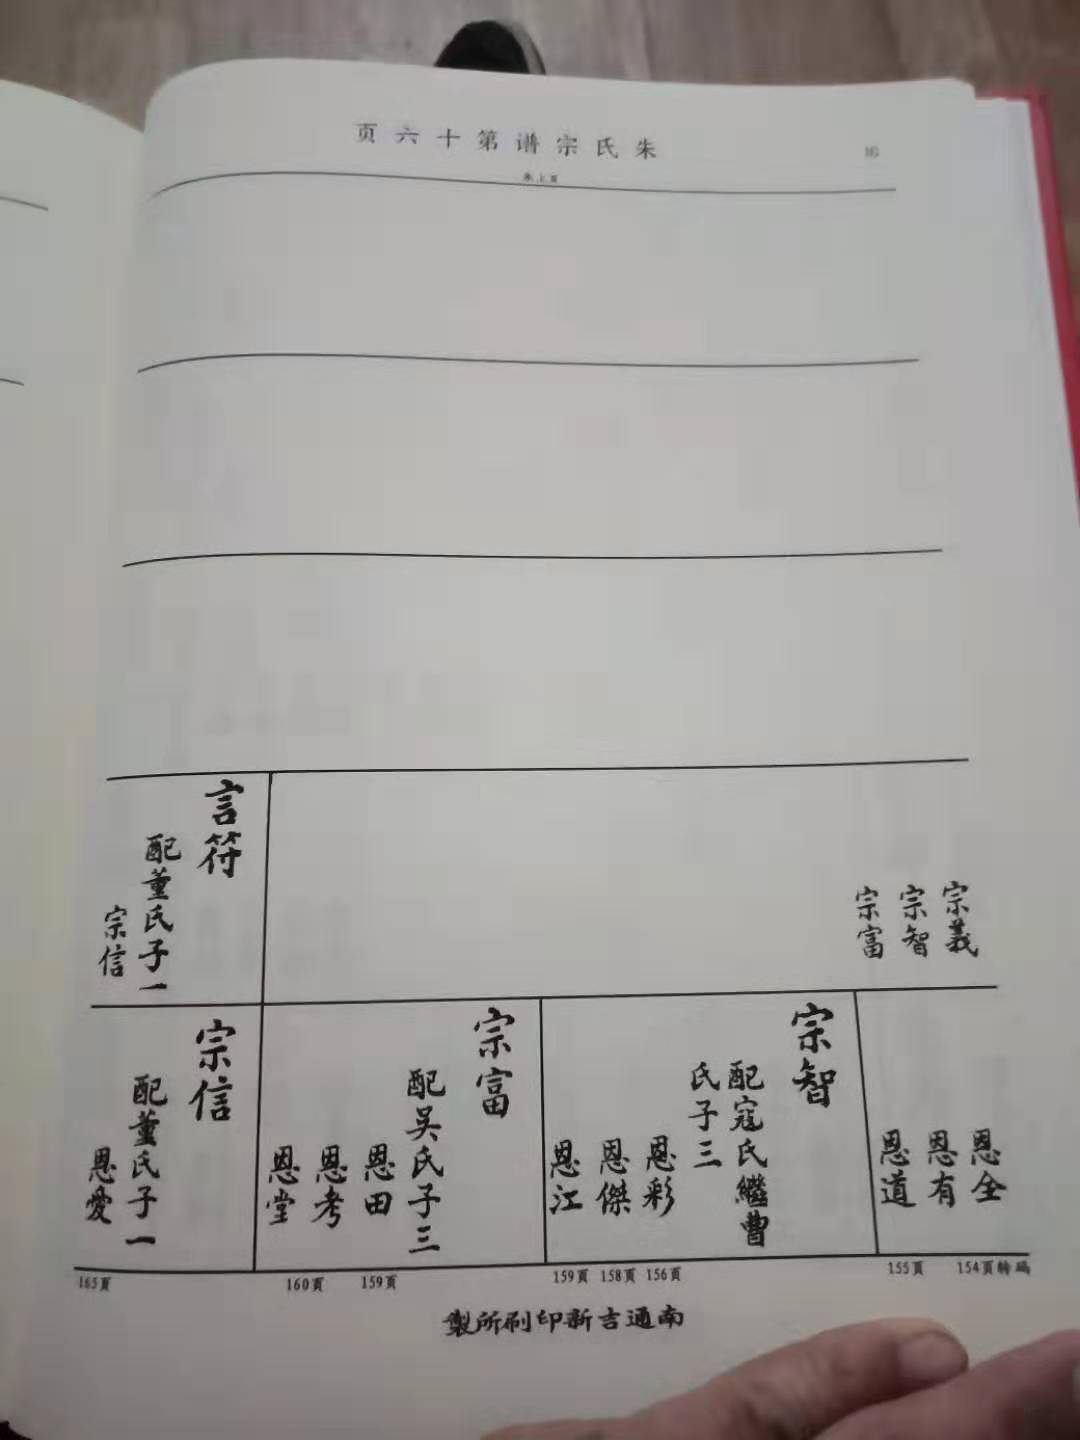 朱氏宗谱第十六页
16
承上页
宗義
宗智
宗富
言符
配董氏子一
宗信
恩全
恩有
恩道
宗智
配寇氏繼曹
氏子三
恩彩
恩傑
恩江
宗富
配吴氏子三
恩田
恩考
恩堂
宗信
配董氏子一
恩愛
154頁转
155頁
156頁
158頁
159頁
159頁
160頁
165頁
南通吉新印刷所製